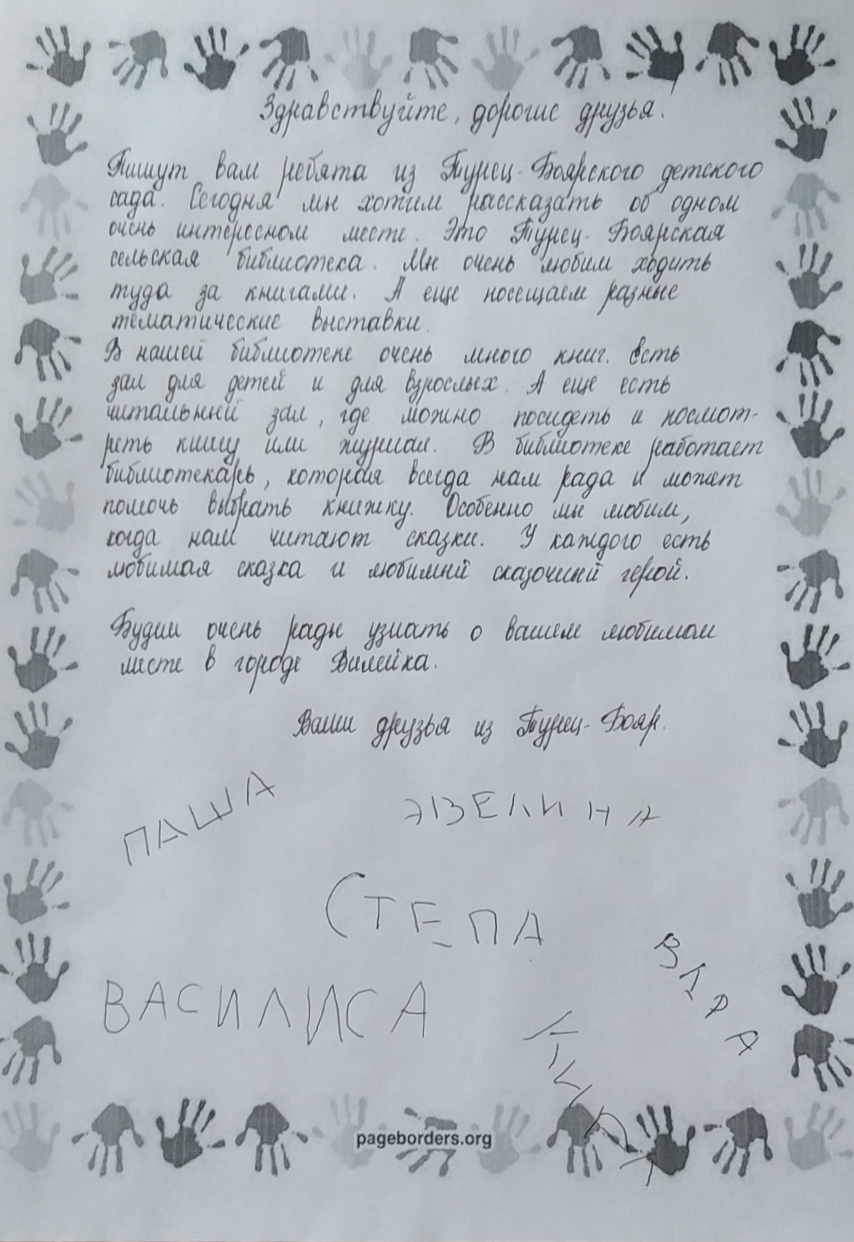 Здравствуйте, дорогие друзья.
Пишут вам ребята из Турец-Боярского детского
сада. Сегодня мы хотим рассказать об одном
очень интересном месте. Это Турец-Боярская
сельская библиотека. Мы очень любим ходить
туда за книгами. А еще посещаем разные
тематические выставки.
В нашей библиотеке очень много книг. Есть
зал для детей и для взрослых. А еще есть
читальный зал, где можно посидеть и посмот-
реть книгу или журнал. В библиотеке работает
библиотекарь, которая всегда нам рада и может
помочь выбрать книжку. Особенно мы любим,
когда нам читают сказки. У каждого есть
любимая сказка и любимый сказочный герой.
Будем очень рады узнать о вашем любимом
месте в городе Вилейка.
Ваши друзья из Турец-Бояр.
ПАША
ЭВЕЛИНА
СТЕПА
ВАРЯ
ВАСИЛИСА
pageborders.org